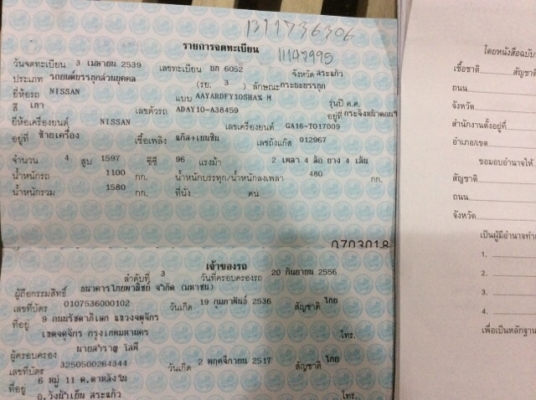 1311736306
รายการจดทะเบียน
11147995
วันจดทะเบียน 3 เมษายน 2539 เลขทะเบียน 6052 จังหวัด สระแก้ว
ประเภท รถยนต์บรรทุกส่วนบุคคล (รย. ) ลักษณะ กระบะบรรทุก
ยี่ห้อรถ NISSAN แบบ รุ่นปี ค.ศ.
สี เทา เลขตัวรถ ADAY10-A38459 อยู่ที่
ยี่ห้อเครื่องยนต์ NISSAN เลขเครื่องยนต์ GA16-T017009
อยู่ที่ ซ้ายเครื่อง เชื้อเพลิง เลขถังแก๊ส 012967
จำนวน 4 สูบ 1597 ซีซี 96 แรงม้า 2 เพลา 4 ล้อ ยาง 4 เส้น
น้ำหนักรถ 1100 กก. น้ำหนักบรรทุก/น้ำหนักลงเพลา 480 กก.
น้ำหนักรวม 1580 กก. ที่นั่ง คน
0703018
เจ้าของรถ
ลำดับที่ 3 วันที่ครอบครองรถ 20 กันยายน 2556
ผู้ถือกรรมสิทธิ์ ธนาคารไทยพาณิชย์ จำกัด (มหาชน)
เลขที่บัตร 0107536000102 วันเกิด 19 กุมภาพันธ์ 2536 สัญชาติ ไทย
ที่อยู่ 9 ถนนรัชดาภิเษก แขวงจตุจักร
เขตจตุจักร กรุงเทพมหานคร โทร.
ผู้ครอบครอง
เลขที่บัตร 3250500264344 วันเกิด 2 พฤศจิกายน 2517 สัญชาติ ไทย
ที่อยู่ 6 หมู่ 11 ต.ตาหลังใน
อ.วังน้ำเย็น สระแก้ว โทร.
โดยหนังสือฉบับ
เชื้อชาติ สัญชาติ
ถนน
จังหวัด
สำนักงานตั้งอยู่ที่
อำเภอ/เขต
ขอมอบอำนาจให้
สัญชาติ
ถนน
จังหวัด
เป็นผู้มีอำนาจทำ
1.
2.
3.
4.
เพื่อเป็นหลักฐาน